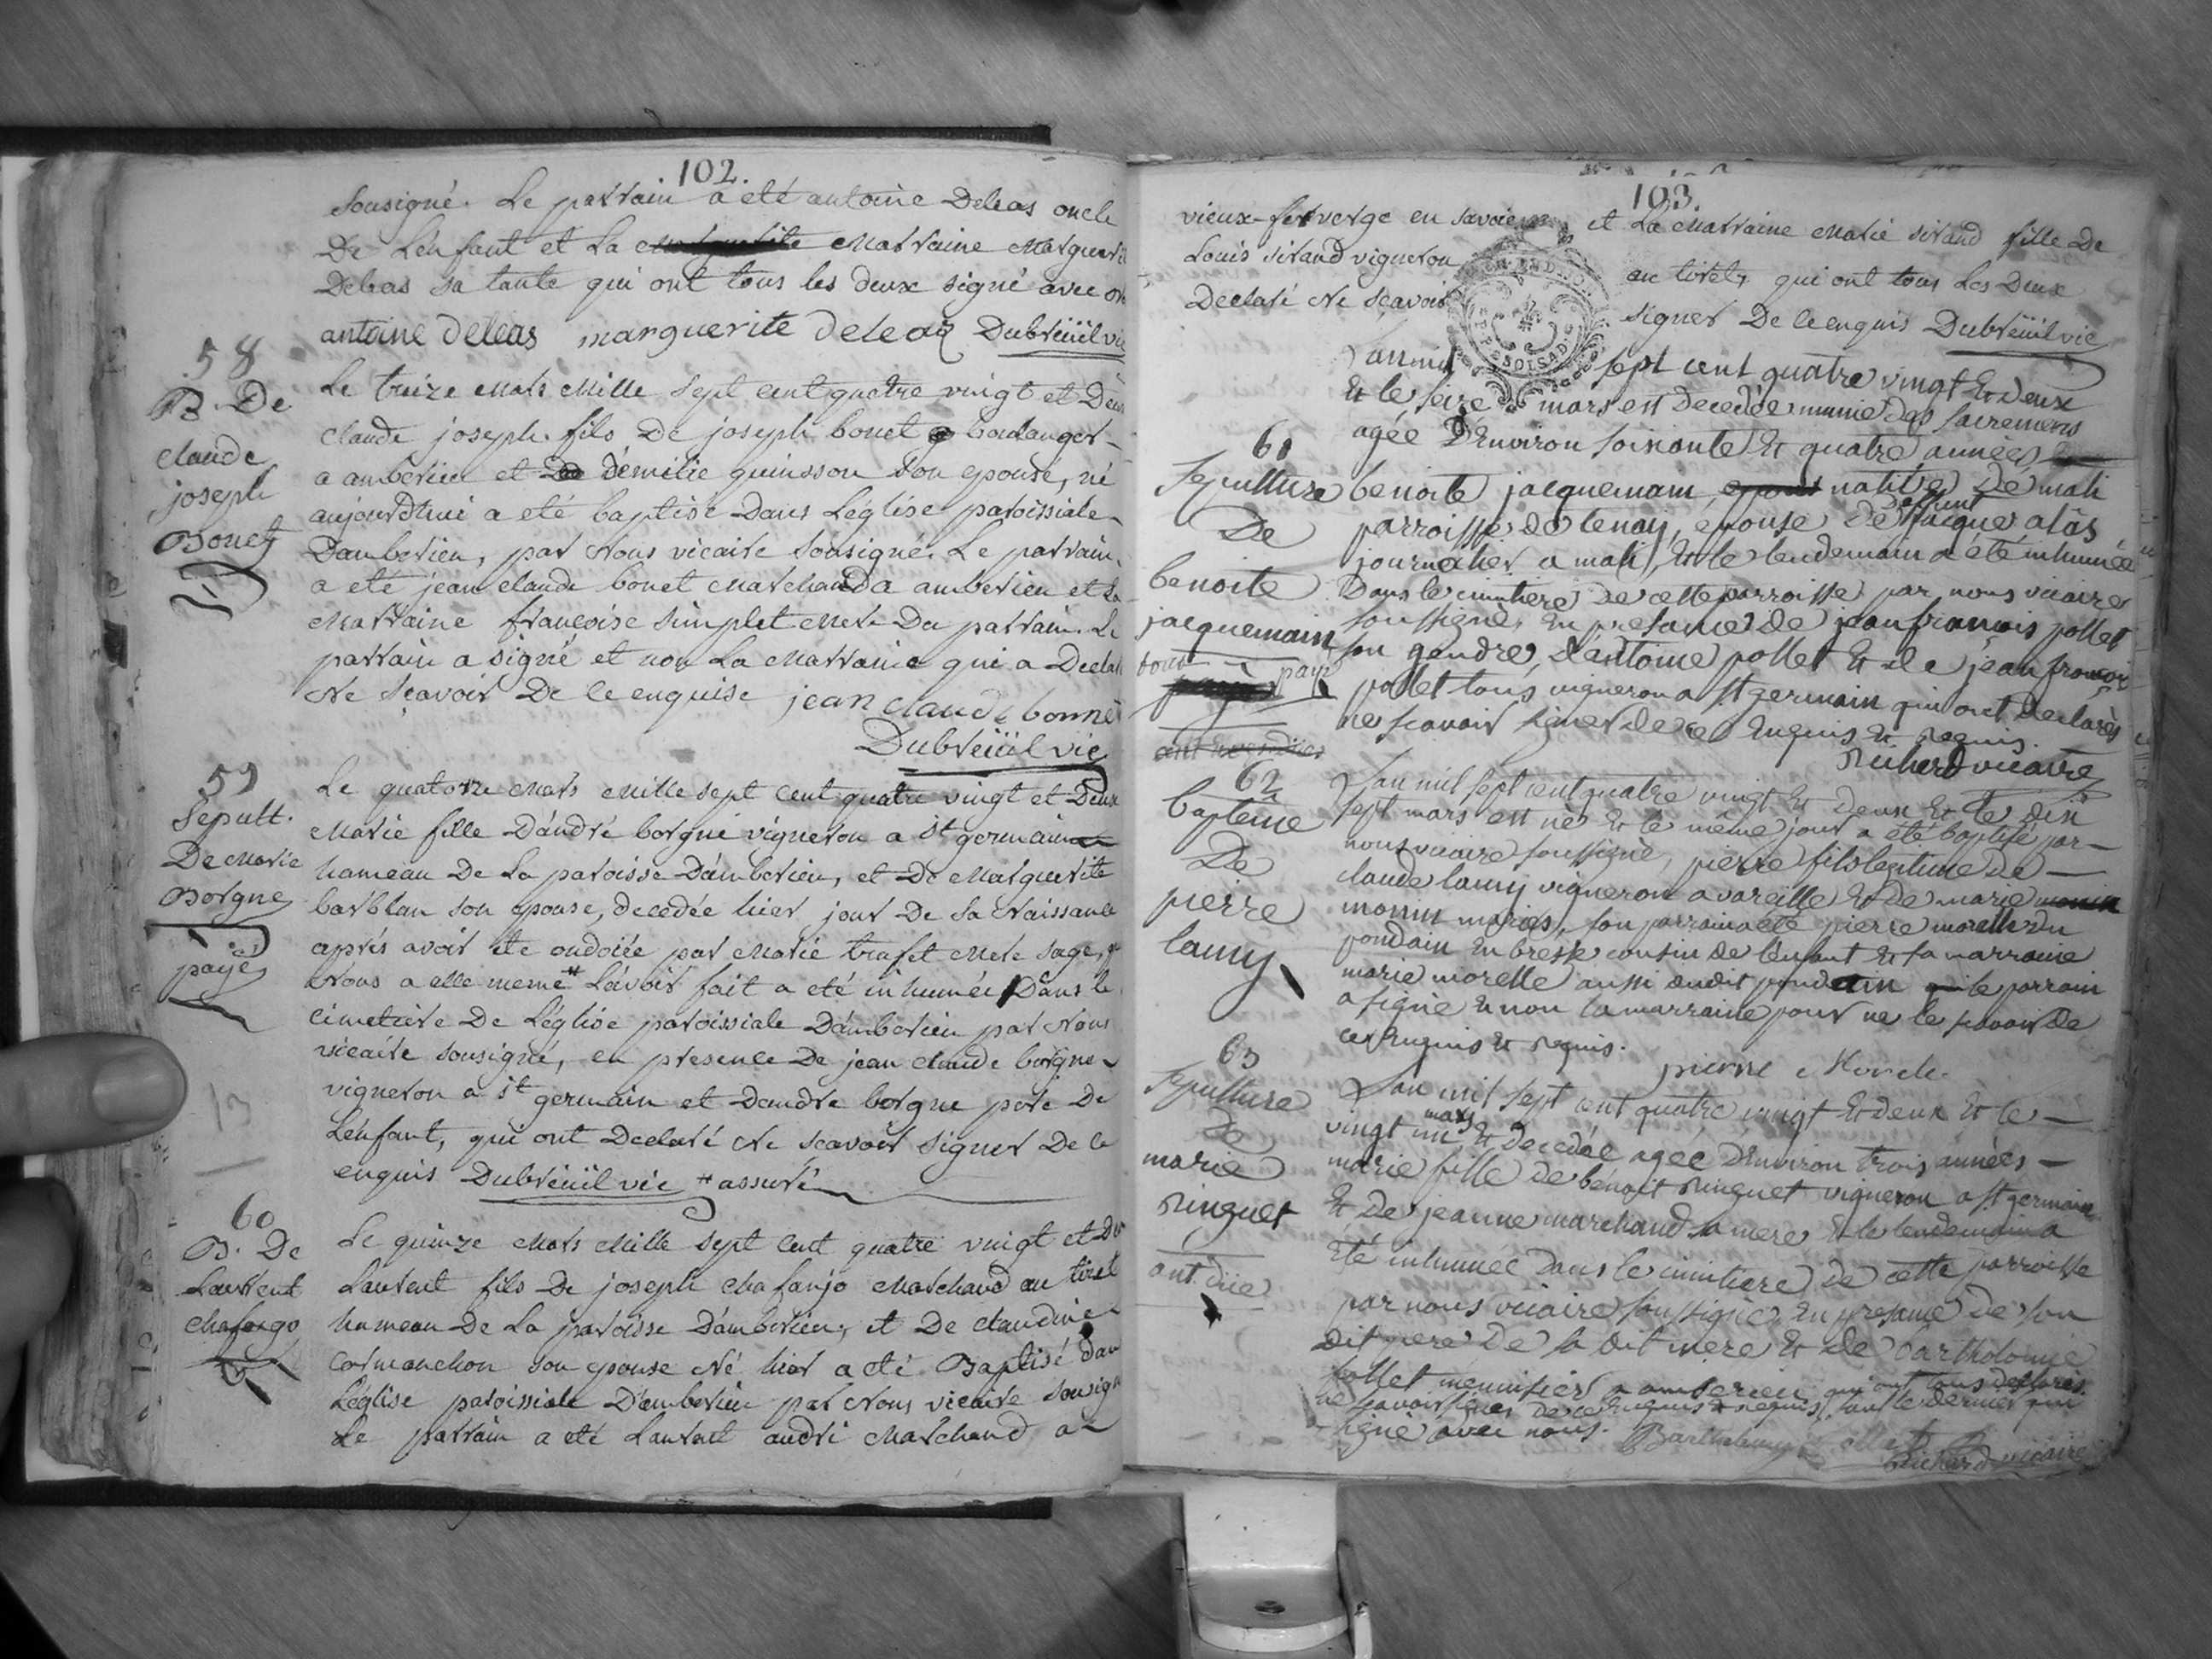 102.
sousigné. Le parrain a eté antoine Deleas oncle
De L'enfant et La marraine Marguerite
Deleas sa tante qui ont tous les deux signé avec
antoine deleas marguerite deleas Dubreüil vic
58
B. De
claude
joseph
Bonet
Le treize Mars Mille sept cent quatre vingt et Deux
claude joseph fils De joseph bonet boulanger
a amberieu et démilie guinsson son epouse, né
aujourdhui a eté baptisé Dans L'église paroissiale
Damberieu, par Nous vicaire sousigné. Le parrain
a eté jean claude bonet Marchand a amberieu et La
Marraine françoise simplet Mere Du parrain. Le
parrain a signé et non La Marraine qui a Declaré
Ne sçavoir De ce enquise jean claude bonnet
Dubreüil vic
59
Sepult.
De Marie
Borgne
payé
Le quatorze Mars Mille sept cent quatre vingt et Deux
Marie fille D'andré borgne vigneron a st germain
hameau De La paroisse D'amberieu, et De Marguerite
barblan son epouse, decedée hier jour De sa Naissance
aprés avoir ete ondoiée par Marie trafet Mere sage,
Nous a elle meme # L'avoir fait a eté inhumée Dans le
cimetiere De L'église paroissiale D'amberieu par Nous
vicaire sousigné, en presence De jean claude borgne
vigneron a st germain et D'andré borgne pere De
L'enfant, qui ont Declaré Ne sçavoir signer De ce
enquis Dubreüil vic # assuré
60
B. De
Laurent
Chafanjo
Le quinze Mars Mille sept cent quatre vingt et Deux
Laurent fils De joseph chafanjo Marchand au tiret
hameau De La paroisse D'amberieu, et De claudine
cormanchon son epouse Né hier a eté Baptisé dans
L'église paroissiale D'amberieu par Nous vicaire sousigné
Le parrain a eté Laurent andré Marchand a
103.
vieux en savoie et La Marraine Marie sirand fille De
Louis sirand vigneron au tiret, qui ont tous Les Deux
Declaré Ne sçavoir signer De ce enquis Dubreüil vic
61
Sepulture
De
benoite
jacquemain
payé
L'an mil sept cent quatre vingt & deux
& le seize mars est decedée munie des sacremens
agée D'Environ soixante & quatre années
benoite jacquemain native De mali
parroisse de tenay, épouse de deffunt jacque alas
journalier a mali, & le lendemain a été inhumée
Dans le cimitiere De cette parroisse par nous vicaire
soussigné, En presance de jean francois pollet
son gendre, d'antoine pollet & de jean francois
pollet tous vigneron a st germain qui ont Declarés
ne scavoir signer de ce Enquis & requis.
Richerd vicaire
62
bapteme
De
pierre
lamy
L'an mil sept cent quatre vingt & deux & le dix
sept mars est né & le même jour a été baptisé par
nous vicaire soussigné, pierre fils legitime de
claude lamy vigneron a vareille & de marie
monin mariés, son parrain a été pierre morelle du
pondain En bresse cousin de l'enfant & sa marraine
marie morelle aussi dudit pondain le parrain
a signé & non la marraine pour ne le scavoir de
ce Enquis & requis.
pierre Morele
63
Sepulture
De
marie
ringuet
L'an mil sept cent quatre vingt & deux & le
vingt un mars & decedée agée D'Environ trois années
marie fille de benoit ringuet vigneron a st germain
& De jeanne marchand sa mere & le lendemain a
été inhumée dans le cimitiere de cette parroisse
par nous vicaire soussigné En presance de son
dit pere De sa dit mere & de bartholomie
pollet menuisier a amberieu qui ont tous declarés
ne scavoir signer de ce Enquis & requis, sauf le dernier qui
a signé avec nous. Barthelemy pollet
Richerd vicaire